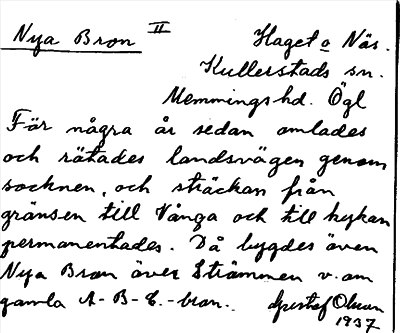 Nya Bron II
Haget o Näs.
Kullerstads sn.
Memmings hd. Ögl
För några år sedan omlades
och rätades landsvägen genom
socknen, och sträckan från
gränsen till Vånga och till kykan
permanentades. Då bygdes även
Nya Bron över Strömmen v. om
gamla A-B-C.-bron. Gustaf Olson
1937